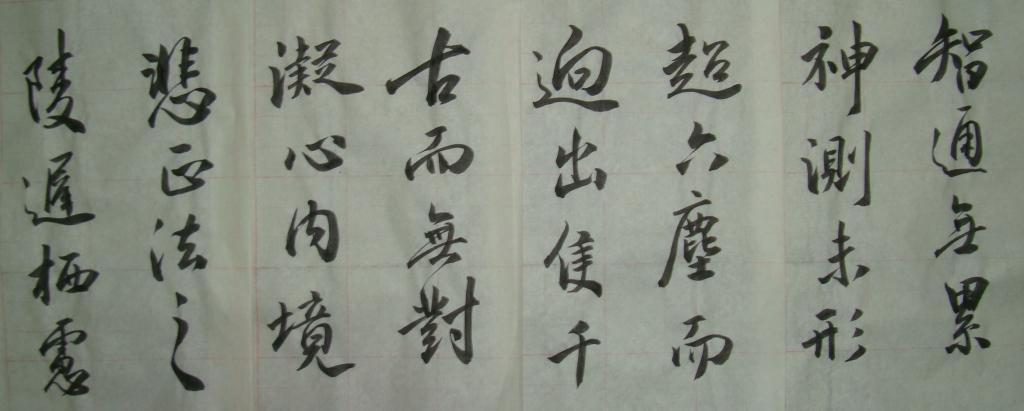 智通無累
神測未形
超六塵而
迥出隻千
古而無對
凝心内境
悲正法之
陵遲栖慮